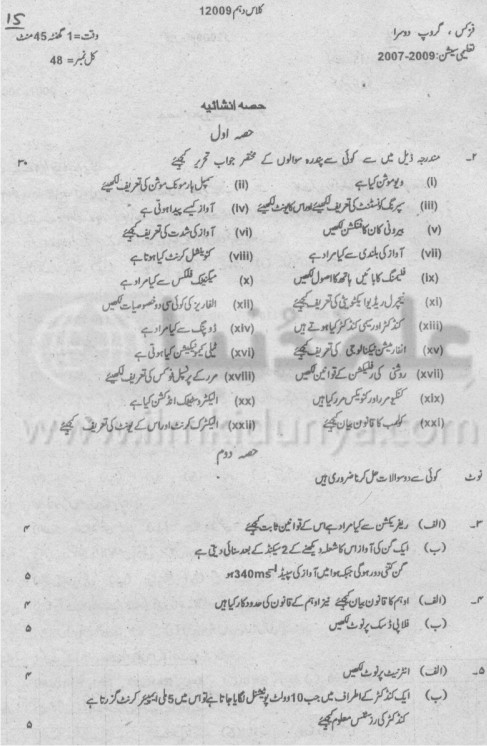 15
کلاس دہم 12009
فزکس ، گروپ دوسرا
وقت=1 گھنٹہ 45 منٹ
تعلیمی سیشن: 2007-2009
کل نمبر= 48
حصہ انشائیہ
حصہ اول
۲۔ مندرجہ ذیل میں سے کوئی سے پندرہ سوالوں کے مختصر جواب تحریر کیجئے ۳۰
(i) ویو موشن کیا ہے (ii) سمپل ہارمونک موشن کی تعریف لکھیئے
(iii) سپرنگ کونسٹنٹ کی تعریف لکھیئے اور اس کا یونٹ لکھیئے (iv) آواز کیسے پیدا ہوتی ہے
(v) بیرونی کان کا فنکشن لکھیں (vi) آواز کی شدت کی تعریف کیجئے
(vii) آواز کی بلندی سے کیا مراد ہے (viii) کنونشنل کرنٹ کیا ہوتا ہے
(ix) فلیمنگ کا بائیں ہاتھ کا اصول لکھیں (x) میگنیٹک فلکس سے کیا مراد ہے
(xi) نیچرل ریڈیو ایکٹیویٹی کی تعریف کیجئے (xii) الفا ریز کی کوئی سی دو خصوصیات لکھیں
(xiii) کنڈکٹر اور سیمی کنڈکٹر کیا ہوتے ہیں (xiv) ڈوپنگ سے کیا مراد ہے
(xv) انفارمیشن ٹیکنالوجی کی تعریف کیجئے (xvi) ٹیلی کمیونیکیشن کیا ہوتی ہے
(xvii) روشنی کی رفلیکشن کے قوانین لکھیں (xviii) مرر کے پرنسپل فوکس کی تعریف لکھیئے
(xix) کنکیو مرر اور کنویکس مرر کیا ہیں (xx) الیکٹروسٹیٹک انڈکشن کیا ہے
(xxi) کولمب کا قانون بیان کیجئے (xxii) الیکٹرک کرنٹ اور اس کے یونٹ کی تعریف کیجئے
علم کی دنیا
www.ilmkidunya.com
حصہ دوم
نوٹ کوئی سے دو سوالات حل کرنا ضروری ہیں
۳۔ (الف) ریفریکشن سے کیا مراد ہے اس کے قوانین ثابت کیجئے ۴
(ب) ایک گن کی آواز اس کا شعلہ دیکھنے کے 2 سیکنڈ کے بعد سنائی دیتی ہے
گن کتنی دور ہوگی جبکہ ہوا میں آواز کی سپیڈ 340ms⁻¹ ہو ۵
۴۔ (الف) اوہم کا قانون بیان کیجئے نیز اوہم کے قانون کی حدود کار کیا ہیں ۴
(ب) فلاپی ڈسک پر نوٹ لکھیں ۵
۵۔ (الف) انٹرنیٹ پر نوٹ لکھیں ۴
(ب) ایک کنڈکٹر کے اطراف میں جب 10 وولٹ پوٹینشل لگایا جاتا ہے تو اس میں 5 ملی ایمپیئر کرنٹ گزرتا ہے
کنڈکٹر کی رزسٹنس معلوم کیجئے ۵